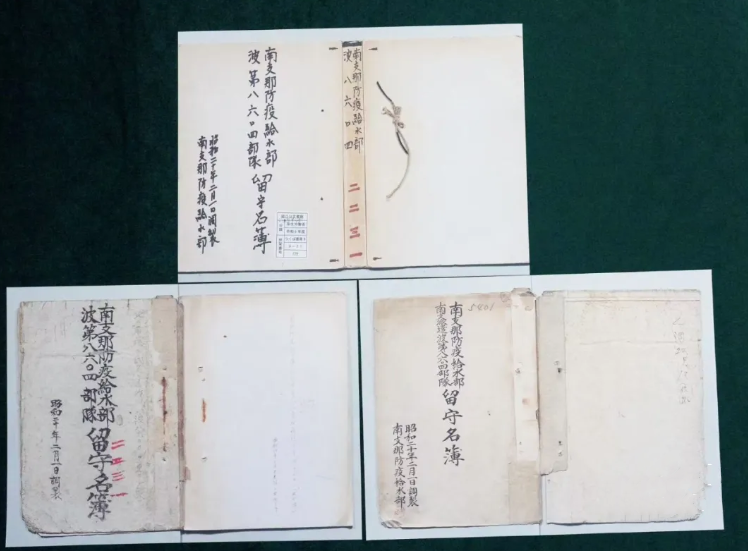 南支那防疫給水部
波第八六〇四部隊
留守名簿
昭和二十年二月一日調製
南支那防疫給水部
南支那防疫給水部
波八六〇四
二二三一
南支那防疫給水部
波第八六〇四部隊
留守名簿
二四三一
昭和二十年二月一日調製
5401
南支那防疫給水部
南支派遣波第八六〇四部隊
留守名簿
昭和二十年二月一日調製
南支那防疫給水部